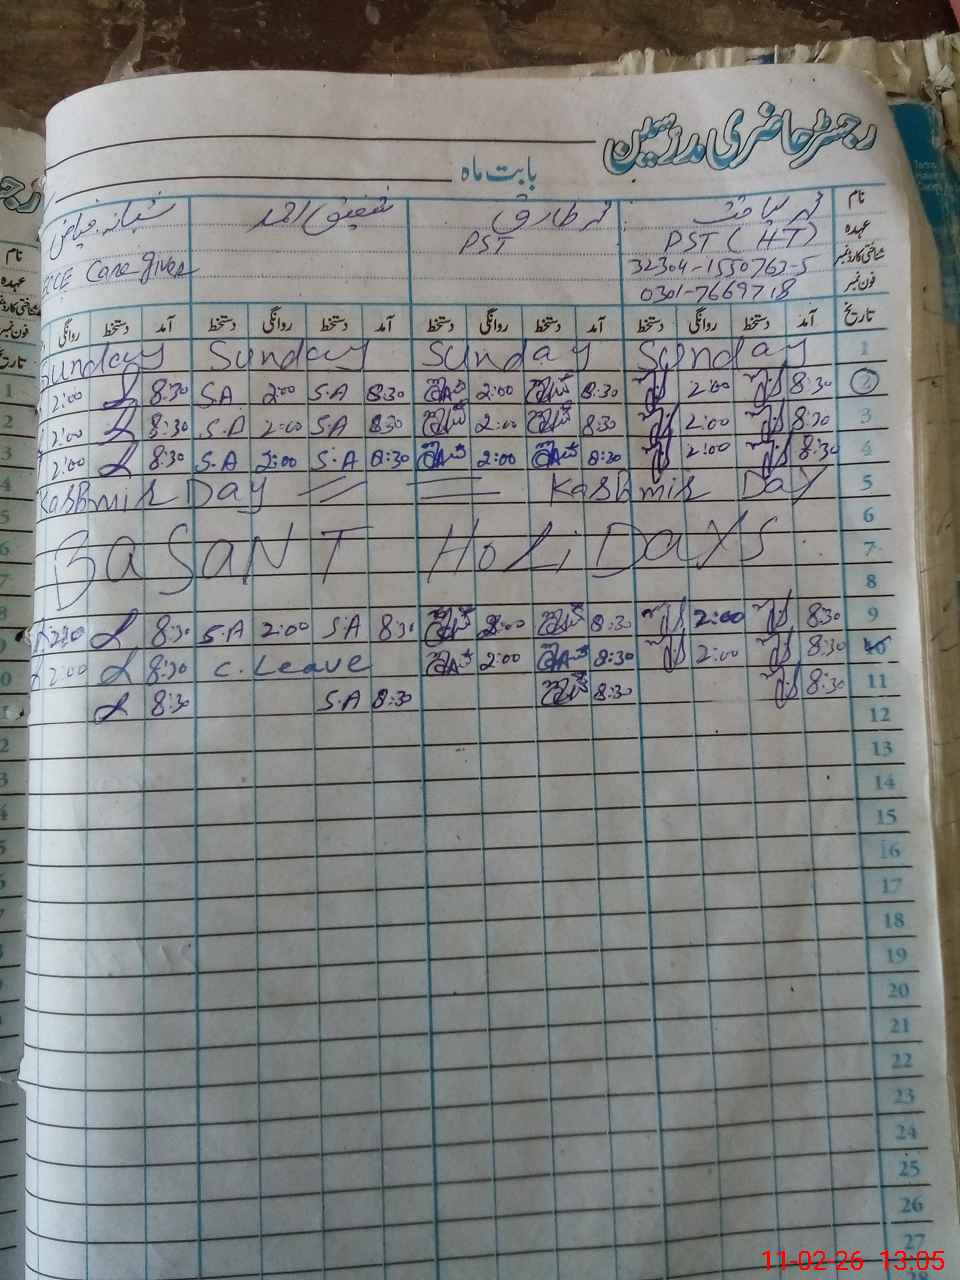 رجسٹر حاضری مدرسین
بابت ماہ
نام شفیق احمد
عہدہ PST ( HT ) PST ECE Care giver
شناختی کارڈ نمبر 32304-1550763-5
فون نمبر 0301-7669718
تاریخ آمد دستخط روانگی دستخط آمد دستخط روانگی دستخط آمد دستخط روانگی دستخط آمد دستخط روانگی
Sunday Sunday Sunday Sunday 1
2:00 8:30 S.A 2:00 S.A 8:30 2:00 8:30 2:00 8:30 2
2:00 8:30 S.A 2:00 S.A 8:30 2:00 8:30 2:00 8:30 3
2:00 8:30 S.A 2:00 S.A 8:30 2:00 8:30 2:00 8:30 4
Kashmir Day Kashmir Day 5
6
BASANT HOLiDAYS 7
8
2:00 8:30 S.A 2:00 S.A 8:30 2:00 8:30 2:00 8:30 9
2:00 8:30 C. Leave 2:00 8:30 2:00 8:30 10
8:30 S.A 8:30 8:30 8:30 11
12
13
14
15
16
17
18
19
20
21
22
23
24
25
26
27
11-02-26 13:05